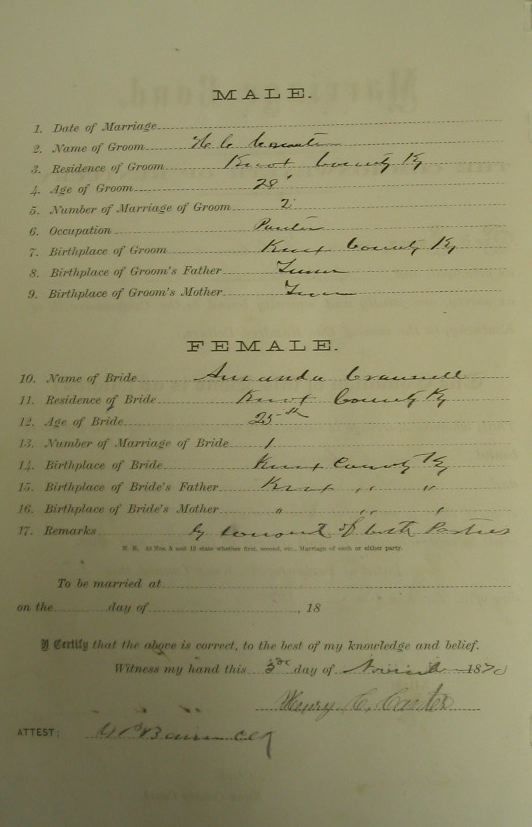 MALE.
1. Date of Marriage
2. Name of Groom H C
3. Residence of Groom Knox County Ky
4. Age of Groom 28
5. Number of Marriage of Groom 2
6. Occupation
7. Birthplace of Groom Knox County Ky
8. Birthplace of Groom's Father
9. Birthplace of Groom's Mother
FEMALE.
10. Name of Bride Amanda
11. Residence of Bride Knox County Ky
12. Age of Bride 25th
13. Number of Marriage of Bride 1
14. Birthplace of Bride Knox County Ky
15. Birthplace of Bride's Father Knox " "
16. Birthplace of Bride's Mother " " "
17. Remarks By consent of both Parties
N. B. At Nos. 5 and 13 state whether first, second, etc., Marriage of each or either party.
To be married at
on the day of , 18
I Certify that the above is correct, to the best of my knowledge and belief.
Witness my hand this 3 day of 187
Henry C. Carter
ATTEST: Clk